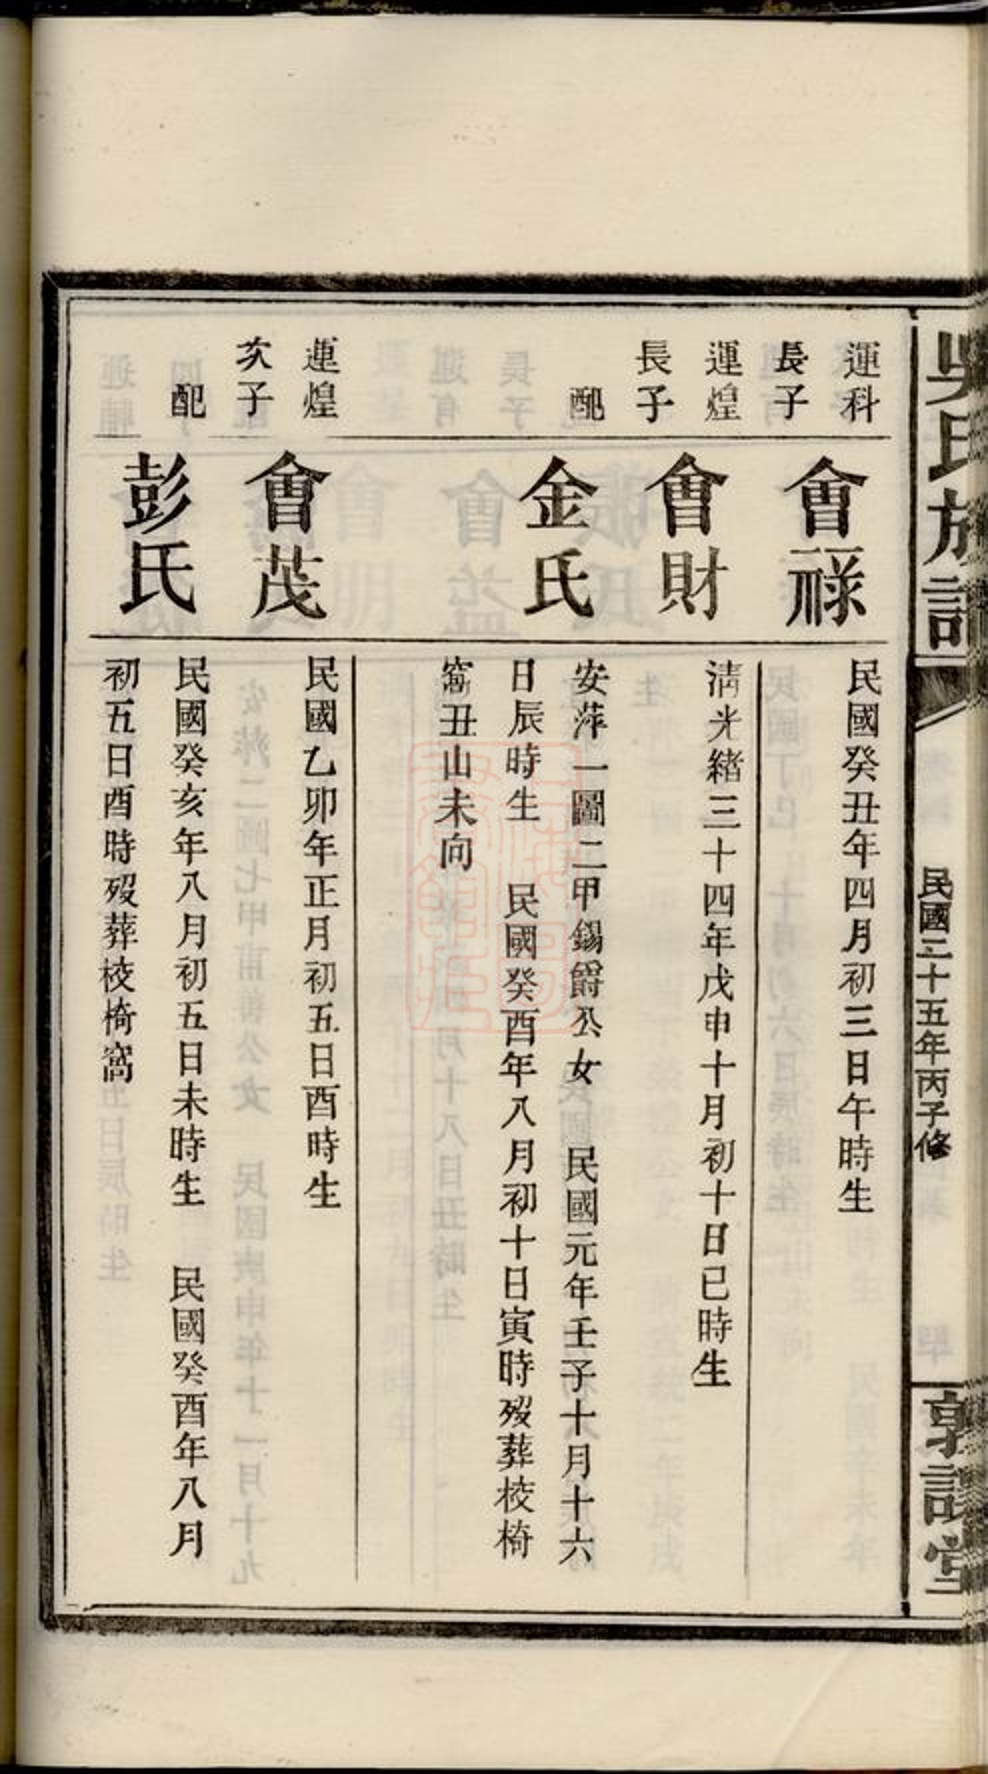 吳氏族譜
民國二十五年丙子修
敦譜堂
運科
長子
會祿
民國癸丑年四月初三日午時生
運煌
長子
會財
清光緒三十四年戊申十月初十日巳時生
配
金氏
安萍一圖二甲錫爵公女 民國元年壬子十月十六
日辰時生 民國癸酉年八月初十日寅時歿葬校椅
窩丑山未向
運煌
次子
會茂
民國乙卯年正月初五日酉時生
配
彭氏
民國癸亥年八月初五日未時生 民國癸酉年八月
初五日酉時歿葬校椅窩